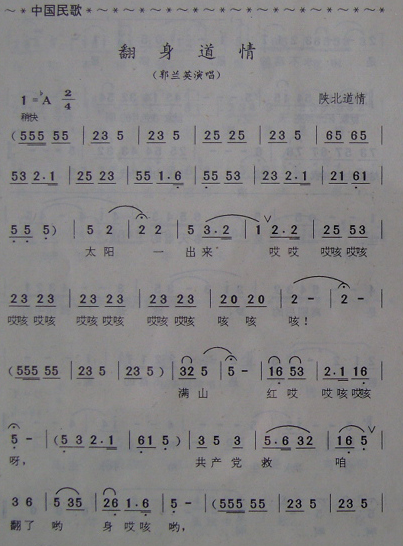 中国民歌
翻身道情
(郭兰英演唱)
1=♭A 2/4 陕北道情
稍快
(555 55 | 23 5 | 23 5 | 25 25 | 23 5 | 23 5 | 65 65 |
53 2·1 | 25 23 | 55 1·6 | 55 53 | 23 2·1 | 21 61 |
5 5 5) | 5 2 | 2 2 | 5 3·2 | 1 2·2 | 25 53 |
太阳 一 出来 哎哎 哎咳哎咳
23 23 | 23 23 | 23 23 | 20 20 | 2 - | 2 - |
哎咳哎咳 哎咳哎咳 哎咳哎咳 咳 咳 咳!
(555 55 | 23 5 | 23 5) | 32 5 | 5 - | 16 53 | 2·1 16 |
满山 红哎 哎咳哎咳
5 - | (5 3 2·1 | 61 5) | 3 5 3 | 5·6 32 | 16 5 |
呀, 共产党 救 咱
3 6 | 5 35 | 26 1·6 | 5 - | (555 55 | 23 5 | 23 5 |
翻了 哟 身哎咳 哟,